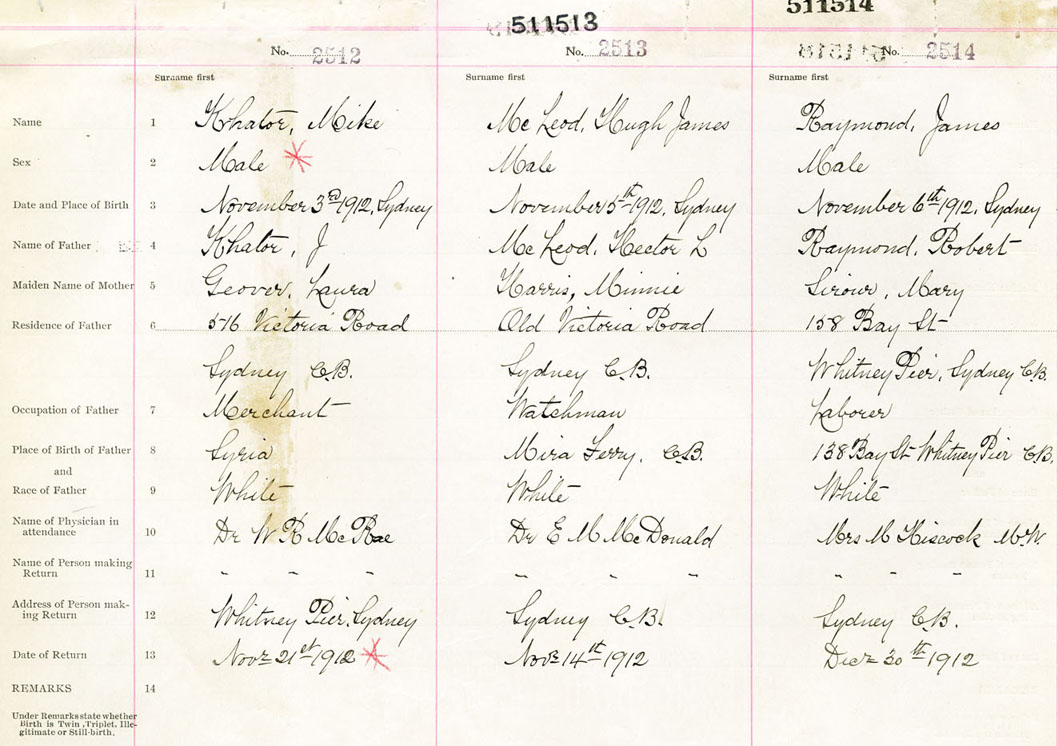 511513
511514
No. 2512
No. 2513
No. 2514
Surname first
Surname first
Surname first
Name 1 Khator, Mike Mc Leod, Hugh James Raymond, James
Sex 2 Male Male Male
Date and Place of Birth 3 November 3rd 1912, Sydney November 5th 1912, Sydney November 6th 1912, Sydney
Name of Father 4 Khator, J Mc Leod, Hector L Raymond, Robert
Maiden Name of Mother 5 Geover, Laura Harris, Minnie Mary
Residence of Father 6 576 Victoria Road Old Victoria Road 158 Bay St
Sydney C.B. Sydney C.B. Whitney Pier, Sydney C.B.
Occupation of Father 7 Merchant Watchman Laborer
Place of Birth of Father 8 Syria Mira Ferry, C.B. 138 Bay St Whitney Pier C.B.
and
Race of Father 9 White White White
Name of Physician in
attendance 10 Dr W R McRae Dr E M McDonald Mrs M Hiscock M.W.
Name of Person making
Return 11 " " " " " " " " "
Address of Person mak-
ing Return 12 Whitney Pier, Sydney Sydney C.B. Sydney C.B.
Date of Return 13 Novr 21st 1912 Novr 14th 1912 Decr 30th 1912
REMARKS 14
Under Remarks state whether
Birth is Twin, Triplet, Ille-
gitimate or Still-birth.